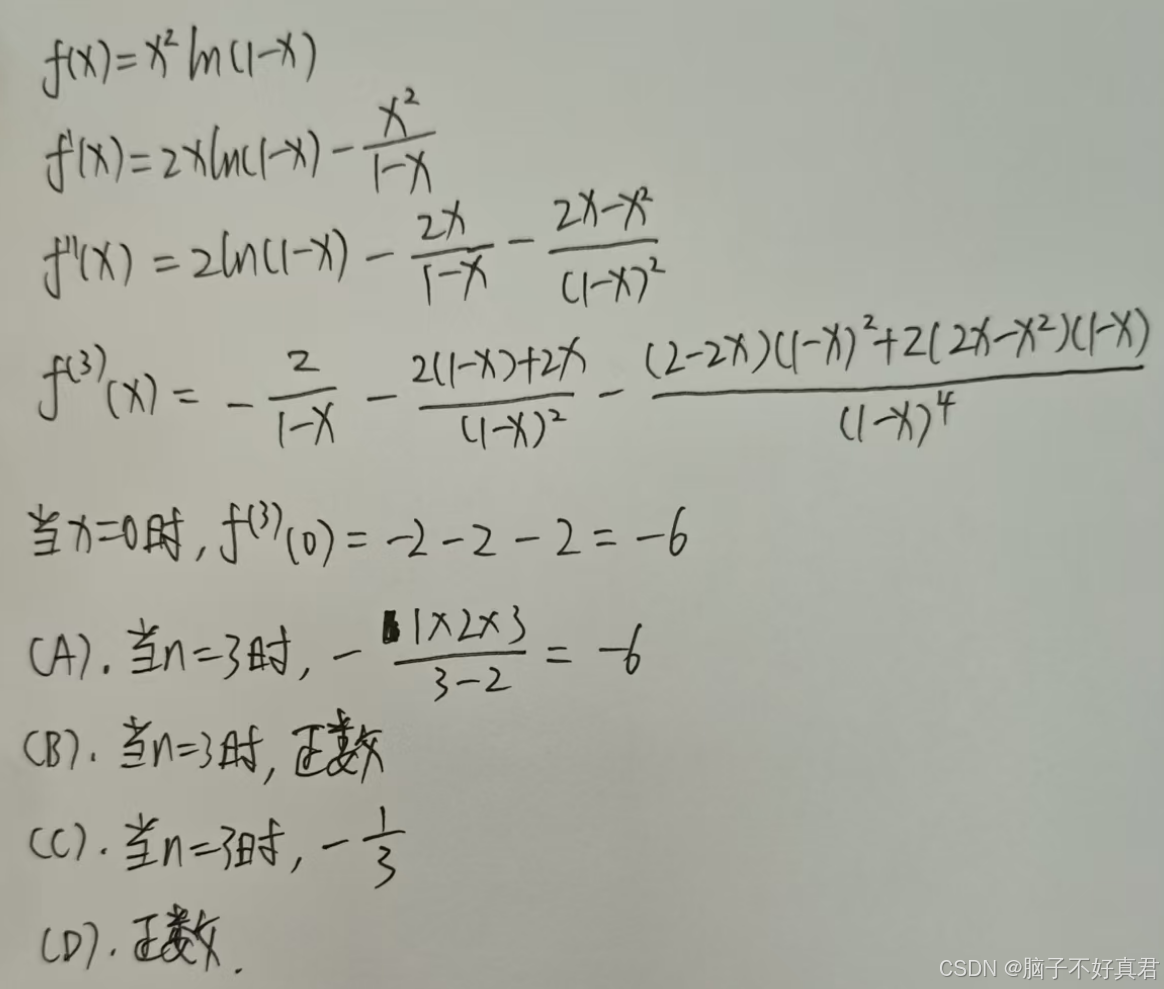 f(x)=x²ln(1-x)
f'(x)=2xln(1-x)-\frac{x²}{1-x}
f''(x)=2ln(1-x)-\frac{2x}{1-x}-\frac{2x-x²}{(1-x)²}
f⁽³⁾(x)=-\frac{2}{1-x}-\frac{2(1-x)+2x}{(1-x)²}-\frac{(2-2x)(1-x)²+2(2x-x²)(1-x)}{(1-x)⁴}
当x=0时,f⁽³⁾(0)=-2-2-2=-6
(A).当n=3时,-\frac{1×2×3}{3-2}=-6
(B).当n=3时,正数
(C).当n=3时,-\frac{1}{3}
(D).正数.
CSDN @脑子不好真君